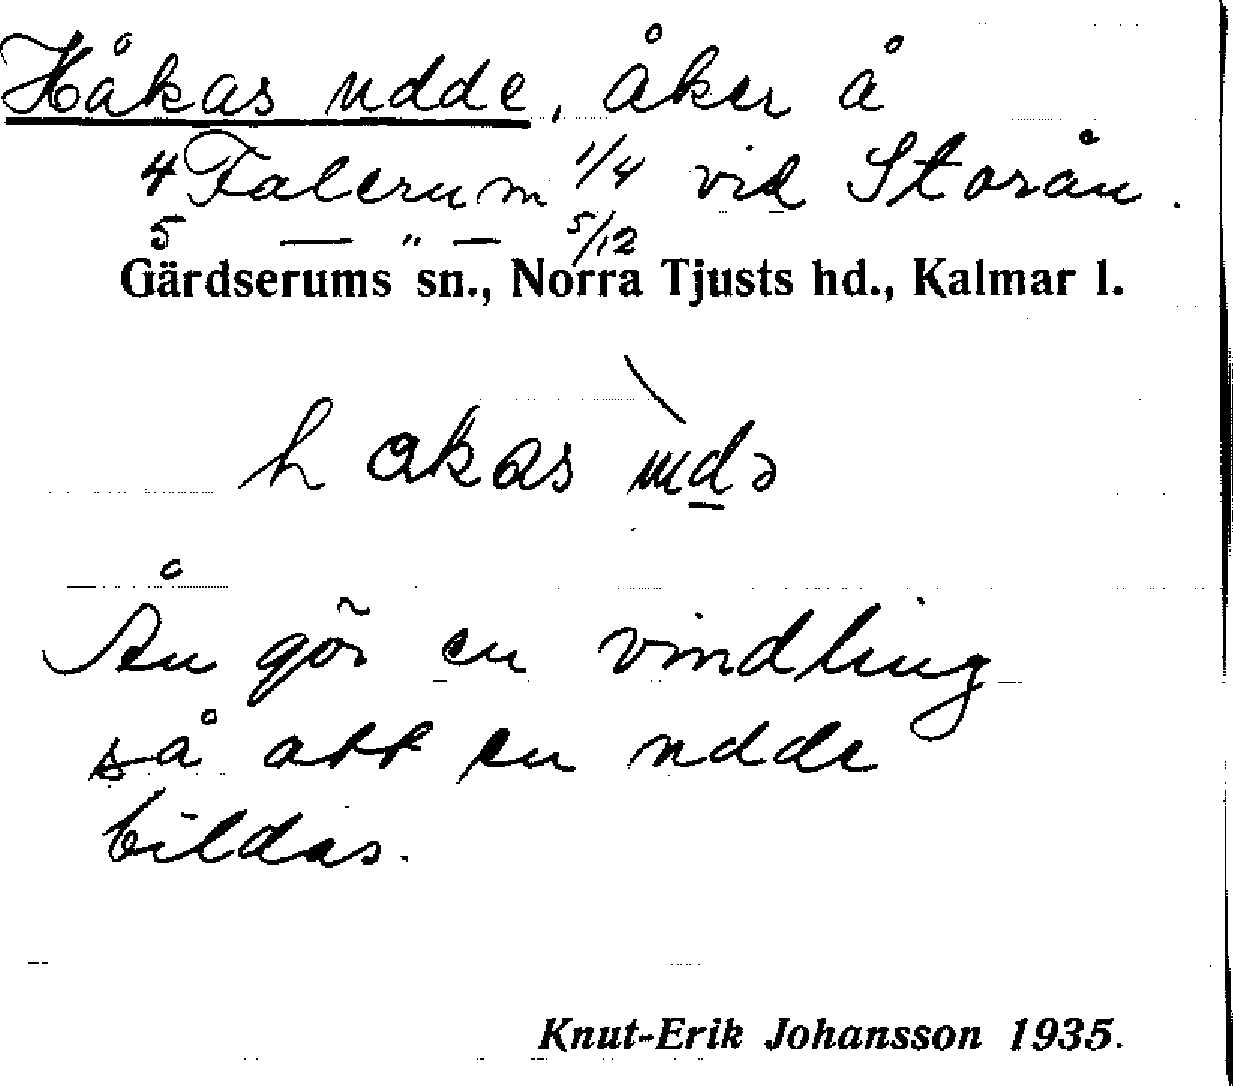 Håkas udde, åker å
4 Falerum 1/4 vid Storån.
5 — " — 5/12
Gärdserums sn., Norra Tjusts hd., Kalmar l.
hakas udə
Ån gör en vindling
så att en udde
bildas.
Knut-Erik Johansson 1935.